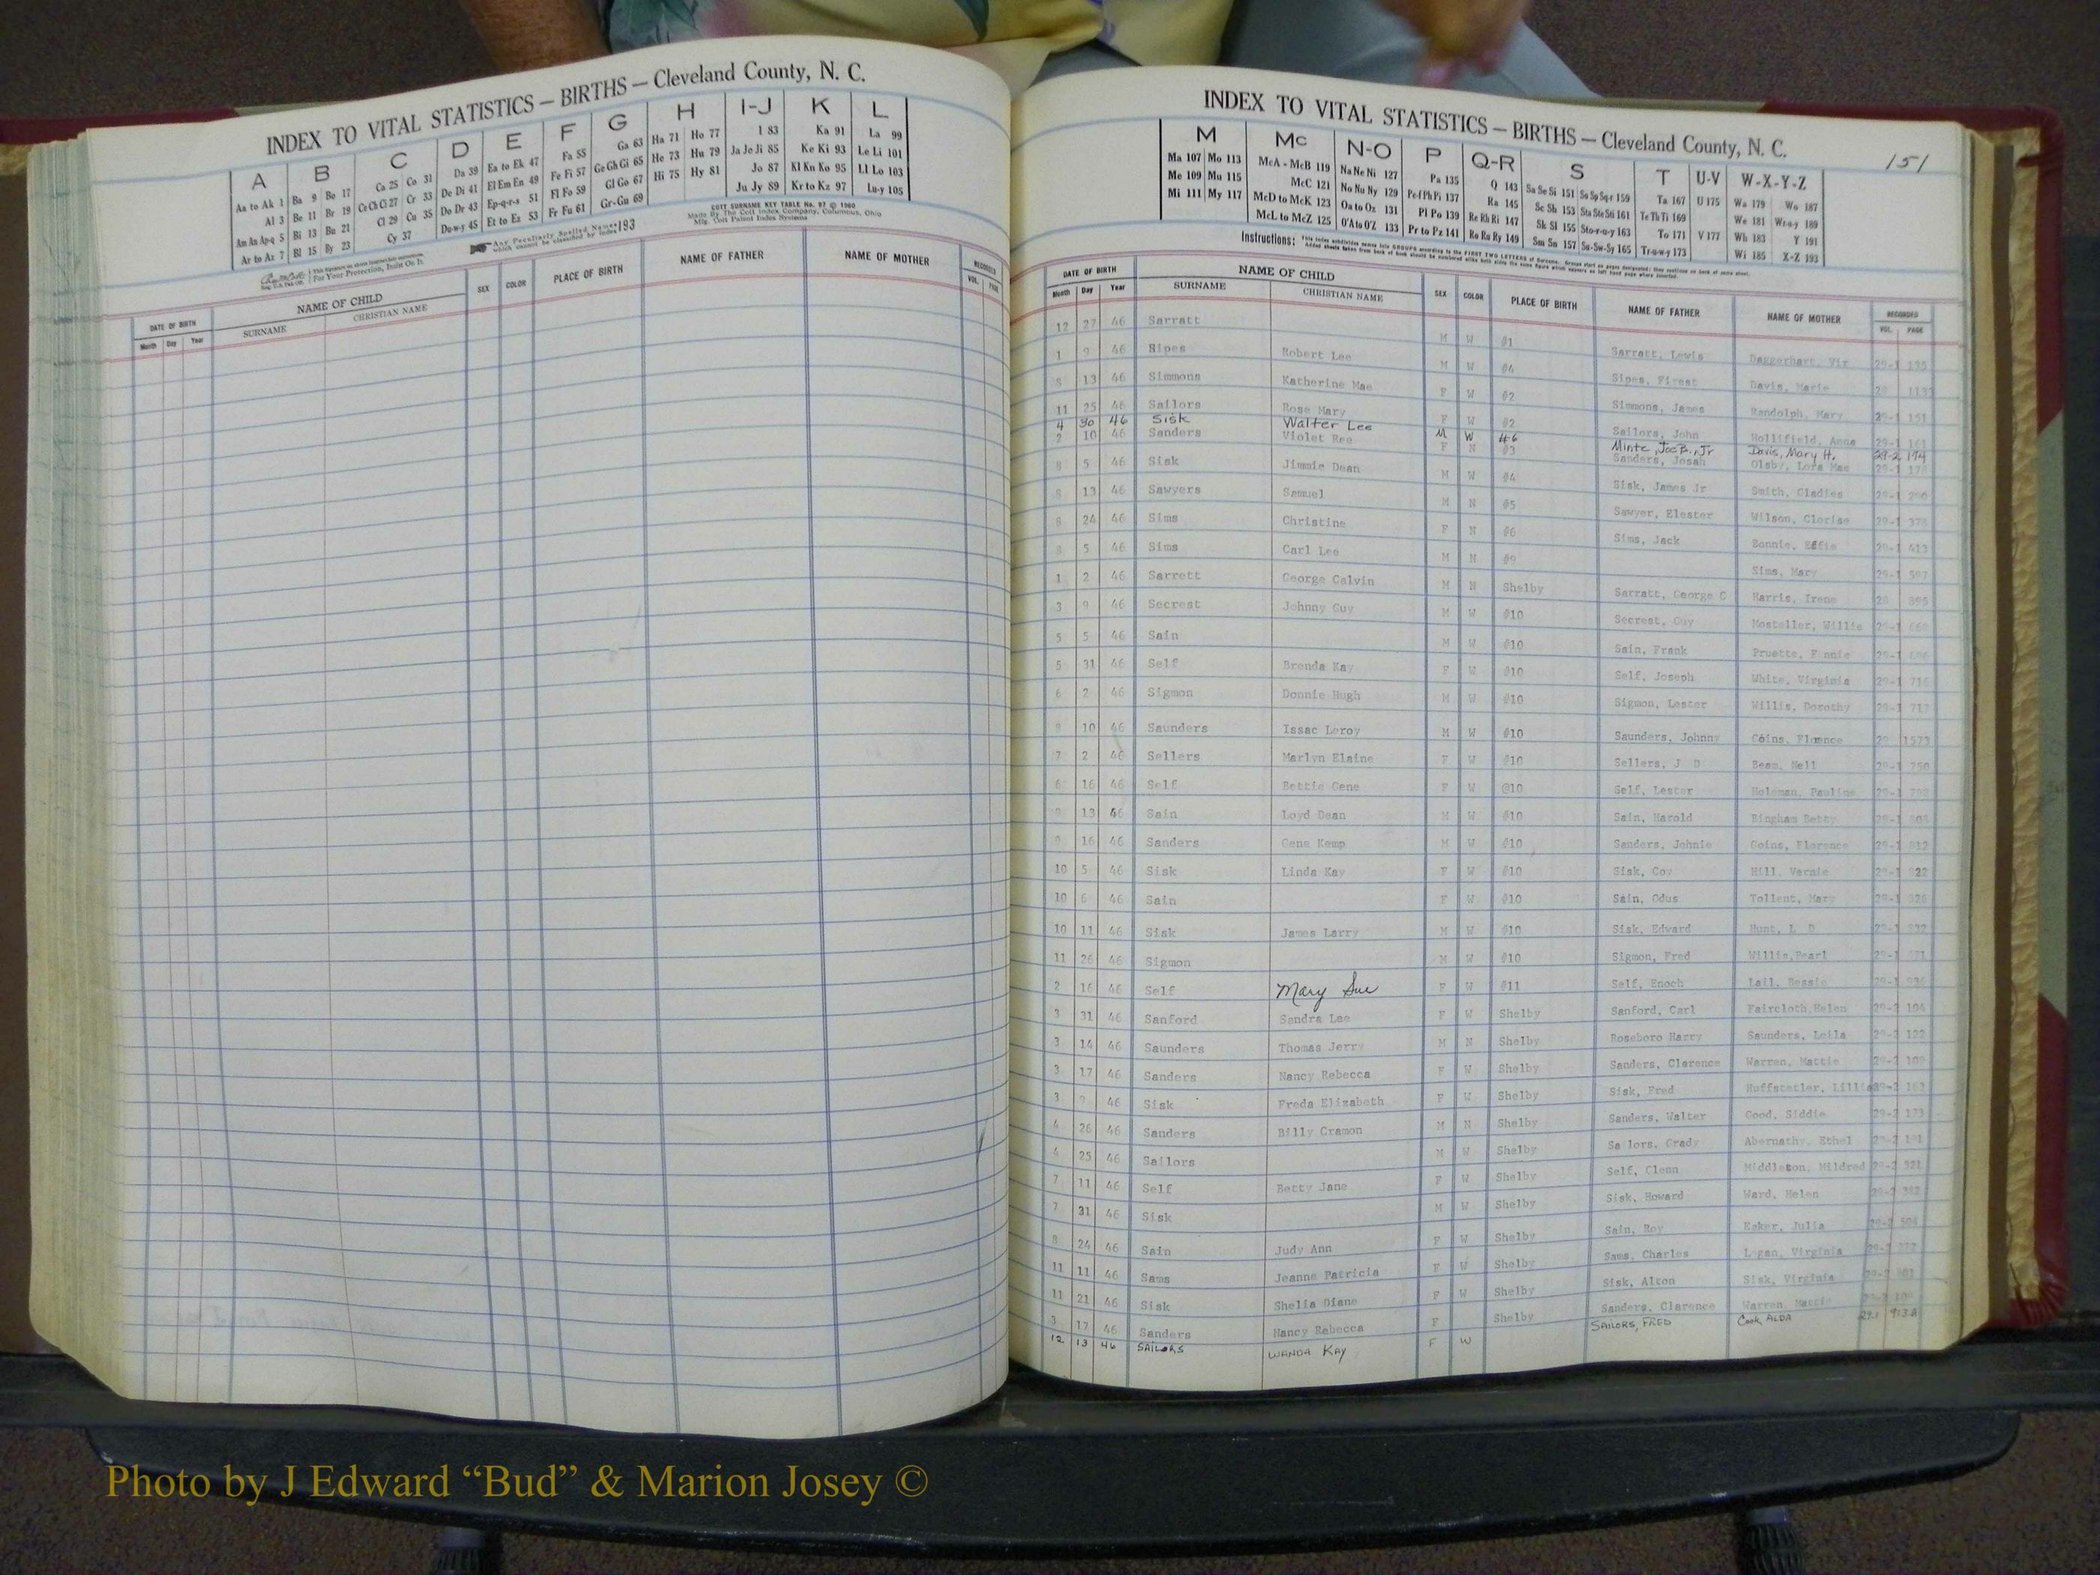 INDEX TO VITAL STATISTICS — BIRTHS — Cleveland County, N. C.
A B C D E F G H I-J K L
Aa to Ak 1 Ba 9 Bo 17 Ca 25 Co 31 Da 39 Ea to Ek 47 Fa 55 Ga 63 Ha 71 Ho 77 I 83 Ka 91 La 99
Al 3 Be 11 Br 19 Ce Ch Ci 27 Cr 33 De Di 41 El Em En 49 Fe Fi 57 Ge Gh Gi 65 He 73 Hu 79 Ja Je Ji 85 Ke Ki 93 Le Li 101
Am An Ap-q 5 Bi 13 Bu 21 Cl 29 Cu 35 Do Dr 43 Ep-q-r-s 51 Fl Fo 59 Gl Go 67 Hi 75 Hy 81 Jo 87 Kl Kn Ko 95 Ll Lo 103
Ar to Az 7 Bl 15 By 23 Cy 37 Du-w-y 45 Et to Ez 53 Fr Fu 61 Gr-Gu 69 Ju Jy 89 Kr to Kz 97 Lu-y 105
Any Peculiarly Spelled Names which cannot be classified by index 193
COTT SURNAME KEY TABLE No. 97 © 1960
Made By The Cott Index Company, Columbus, Ohio
For Your Protection, Insist On It.
DATE OF BIRTH NAME OF CHILD SEX COLOR PLACE OF BIRTH NAME OF FATHER NAME OF MOTHER RECORDED
Month Day Year SURNAME CHRISTIAN NAME VOL. PAGE
INDEX TO VITAL STATISTICS — BIRTHS — Cleveland County, N. C.
151
M Mc N-O P Q-R S T U-V W-X-Y-Z
Ma 107 Mo 113 McA - McB 119 Na Ne Ni 127 Pa 135 Q 143 Sa Se Si 151 So Sp Sq-r 159 Ta 167 U 175 Wa 179 Wo 187
Me 109 Mu 115 McC 121 No Nu Ny 129 Pe-f Ph Pi 137 Ra 145 Sc Sh 153 Sta Ste Sti 161 Te Th Ti 169 We 181 Wr-u-y 189
Mi 111 My 117 McD to McK 123 Oa to Oz 131 Pl Po 139 Re Rh Ri 147 Sk Sl 155 Sto-r-u-y 163 To 171 V 177 Wh 183 Y 191
McL to McZ 125 O'A to O'Z 133 Pr to Pz 141 Ro Ru Ry 149 Sm Sn 157 Su-Sw-Sy 165 Tr-u-w-y 173 Wi 185 X-Z 193
Instructions:
DATE OF BIRTH NAME OF CHILD SEX COLOR PLACE OF BIRTH NAME OF FATHER NAME OF MOTHER RECORDED
Month Day Year SURNAME CHRISTIAN NAME VOL. PAGE
12 27 46 Sarratt M W #1 Sarratt, Lewis Daggerhart, Vir 29-1 135
1 9 46 Sipes Robert Lee M W #4 Sipes, Davis, Marie
8 13 46 Simmons Katherine Mae F W #2 Simmons, James Randolph, Mary 29-1 151
11 25 46 Sailors Rose Mary F W #2 Sailors, John Hollifield, Anna 29-1 161
4 30 46 Sisk Walter Lee M W #6 Minte, Joe B., Jr Davis, Mary H. 29-2 174
2 10 46 Sanders Violet Ree F N #3 Sanders, Josah Olsby, Lora Mae 29-1
8 5 46 Sisk Jimmie Dean M W #4 Sisk, James Jr Smith, Gladies 29-1
8 13 46 Sawyers Samuel M N #5 Sawyer, Elester Wilson, Clorise 29-1
8 24 46 Sims Christine F N #6 Sims, Jack Bonnie, Effie 29-1 413
8 5 46 Sims Carl Lee M N #9 Sims, Mary 29-1 597
1 2 46 Sarrett George Calvin M N Shelby Sarratt, George C Harris, Irene 29 895
3 9 46 Secrest Johnny Guy M W #10 Secrest, Guy Mosteller, Willie 29-1
5 5 46 Sain M W #10 Sain, Frank Pruette, Fannie 29-1
5 31 46 Self Brenda Kay F W #10 Self, Joseph White, Virginia 29-1 716
6 2 46 Sigmon Donnie Hugh M W #10 Sigmon, Lester Willis, Dorothy 29-1 717
8 10 46 Saunders Issac Leroy M W #10 Saunders, Johnny Coins, Florence 29 1573
7 2 46 Sellers Marlyn Elaine F W #10 Sellers, J D Beam, Nell 29-1 750
6 16 46 Self Bettie Gene F W @10 Self, Lester Holeman, Pauline 29-1
9 13 46 Sain Loyd Dean M W #10 Sain, Harold Bingham Betty 29-1
9 16 46 Sanders Gene Kemp M W #10 Sanders, Johnie Goins, Florence 29-1 812
10 5 46 Sisk Linda Kay F W #10 Sisk, Coy Hill, Vernie 29-1 822
10 6 46 Sain F W #10 Sain, Odus Tollent, Mary 29-1
10 11 46 Sisk James Larry M W #10 Sisk, Edward Hunt, L D 29-1
11 26 46 Sigmon M W #10 Sigmon, Fred Willis, Pearl 29-1
2 16 46 Self Mary Sue F W #11 Self, Enoch Lail, Bessie 29-1
3 31 46 Sanford Sandra Lee F W Shelby Sanford, Carl Faircloth, Helen 29-2
3 14 46 Saunders Thomas Jerry M N Shelby Roseboro Harry Saunders, Leila 29-2 122
3 17 46 Sanders Nancy Rebecca F W Shelby Sanders, Clarence Warren, Mattie 29-2
3 9 46 Sisk Freda Elizabeth F W Shelby Sisk, Fred Huffstetler, Lillie 29-2 163
4 26 46 Sanders Billy Cramon M N Shelby Sanders, Walter Good, Siddie 29-2 173
4 25 46 Sailors M W Shelby Sa lors, Grady Abernathy, Ethel 29-2
7 11 46 Self Betty Jane F W Shelby Self, Clenn Middleton, Mildred 29-2 321
7 31 46 Sisk M W Shelby Sisk, Howard Ward, Helen 29-2
8 24 46 Sain Judy Ann F W Shelby Sain, Roy Eaker, Julia 29-2
11 11 46 Sams Jeanne Patricia F W Shelby Sams, Charles Logan, Virginia
11 21 46 Sisk Shelia Diane F W Shelby Sisk, Alton Sisk, Virginia
3 17 46 Sanders Nancy Rebecca F Shelby Sanders, Clarence Warren, Mattie
12 13 46 SAILORS WANDA KAY F W SAILORS, FRED Cook, ALDA 29-1 913A
Photo by J Edward “Bud” & Marion Josey ©